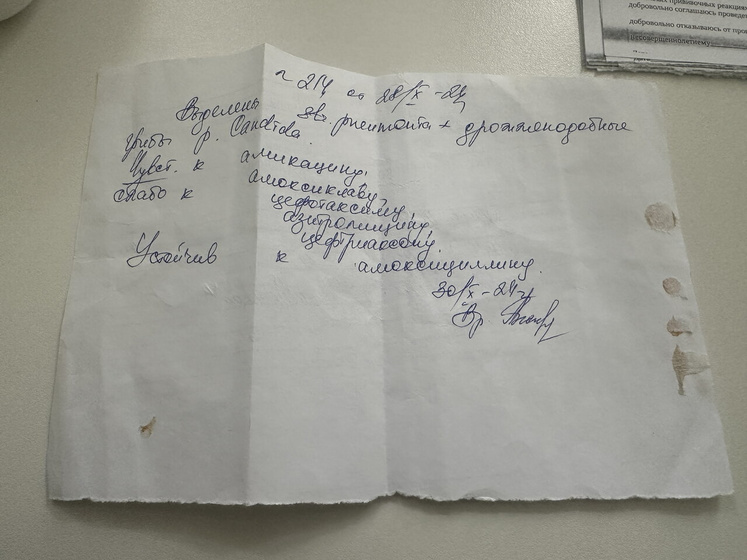 добровольно соглашаюсь проведе
добровольно отказываюсь от про
несовершеннолетнему
~ 214 от 28/IX - 24
Выделены пневмонта + дрожжеподобные
грибы р. Candida.
Чувст. к амикацину,
слабо к амоксиклаву,
цефотаксиму,
азитромицину,
цефтриаксону.
Устойчив к амоксициллину.
30/IX - 24
Вр.